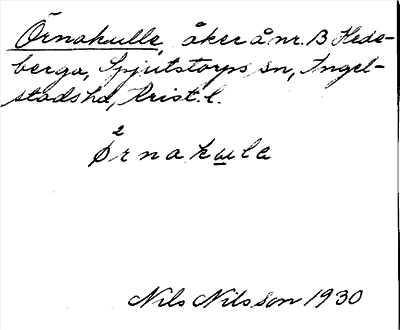 Örnakulle, åker å nr. 13 Hede-
berga, Spjutstorps sn, Ingel-
stads hd, Krist. l.
2
ørnakule
Nils Nilsson 1930